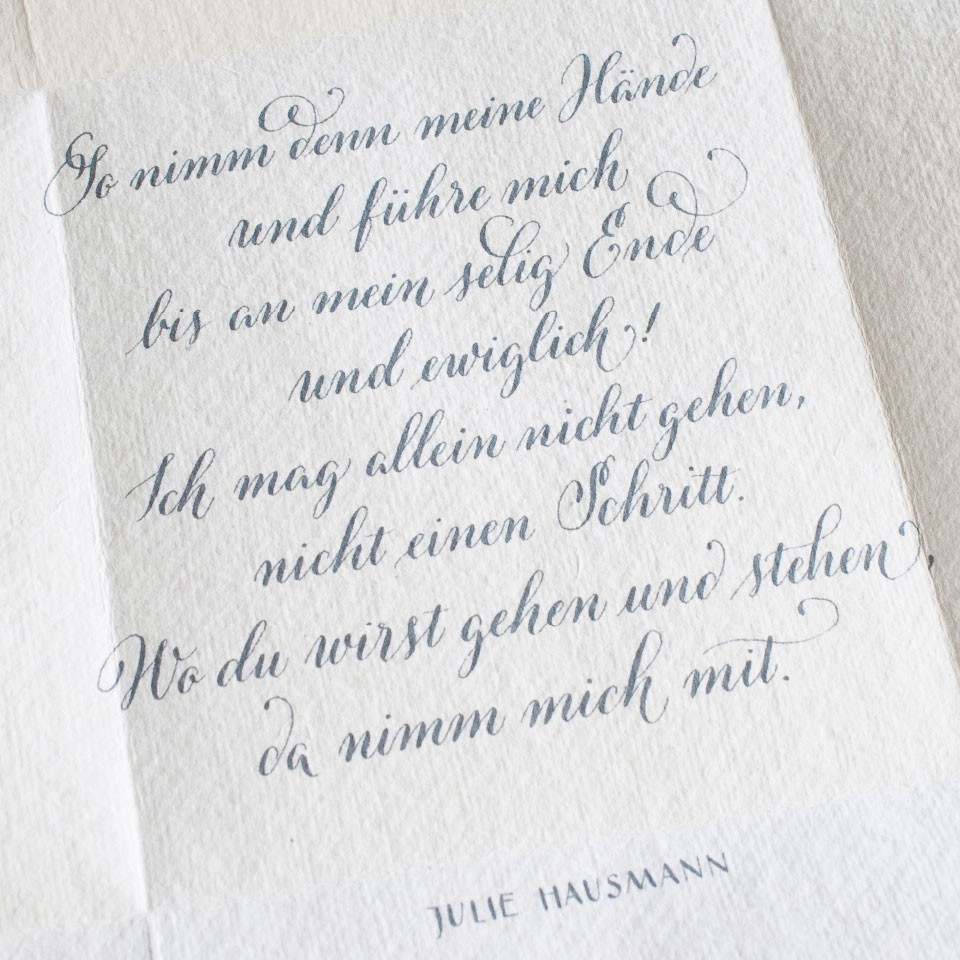 So nimm denn meine Hände
und führe mich
bis an mein selig Ende
und ewiglich!
Ich mag allein nicht gehen,
nicht einen Schritt.
Wo du wirst gehen und stehen,
da nimm mich mit.
JULIE HAUSMANN